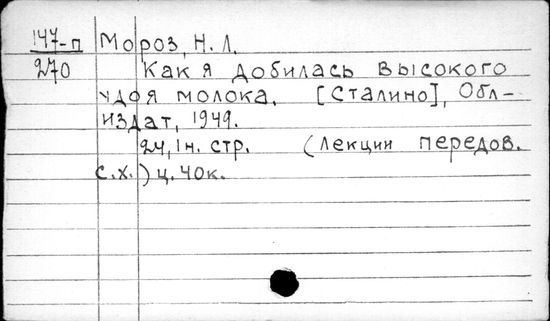 147-п Мороз, Н. Л.
270 Как я добилась высокого
удоя молока. [Сталино], Обл-
издат, 1949.
24, 1 н. стр. (лекции передов.
с.х.) ц. 40к.